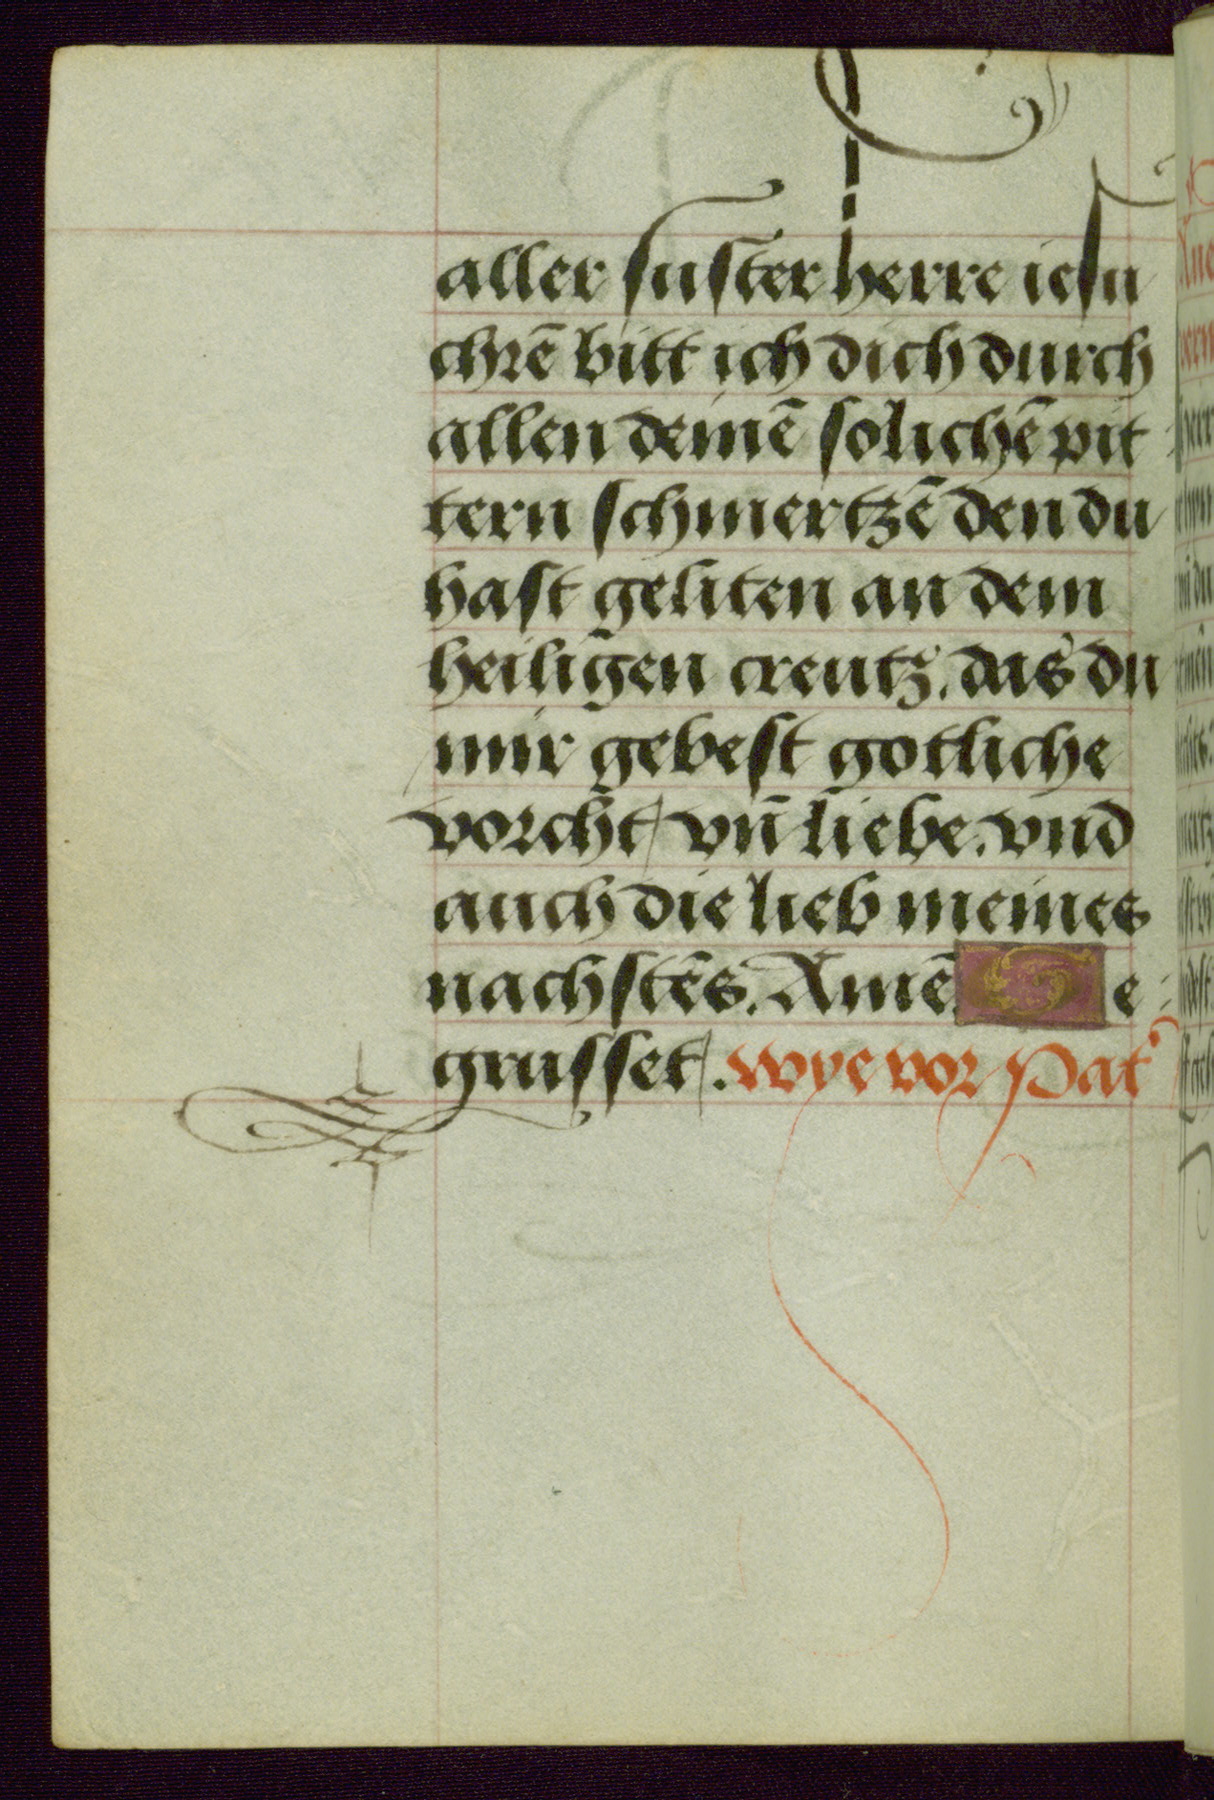 aller suster herre iesu
chrē bitt ich dich durch
allen deinē solichē pit
tern schmertzē den du
hast geliten an dem
heiligen creutz. das du
mir gebest gotliche
vorcht vn̄ liebe. vnd
auch die lieb meines
nachstēs. Amē. Ge
grusset. wye vor Pat